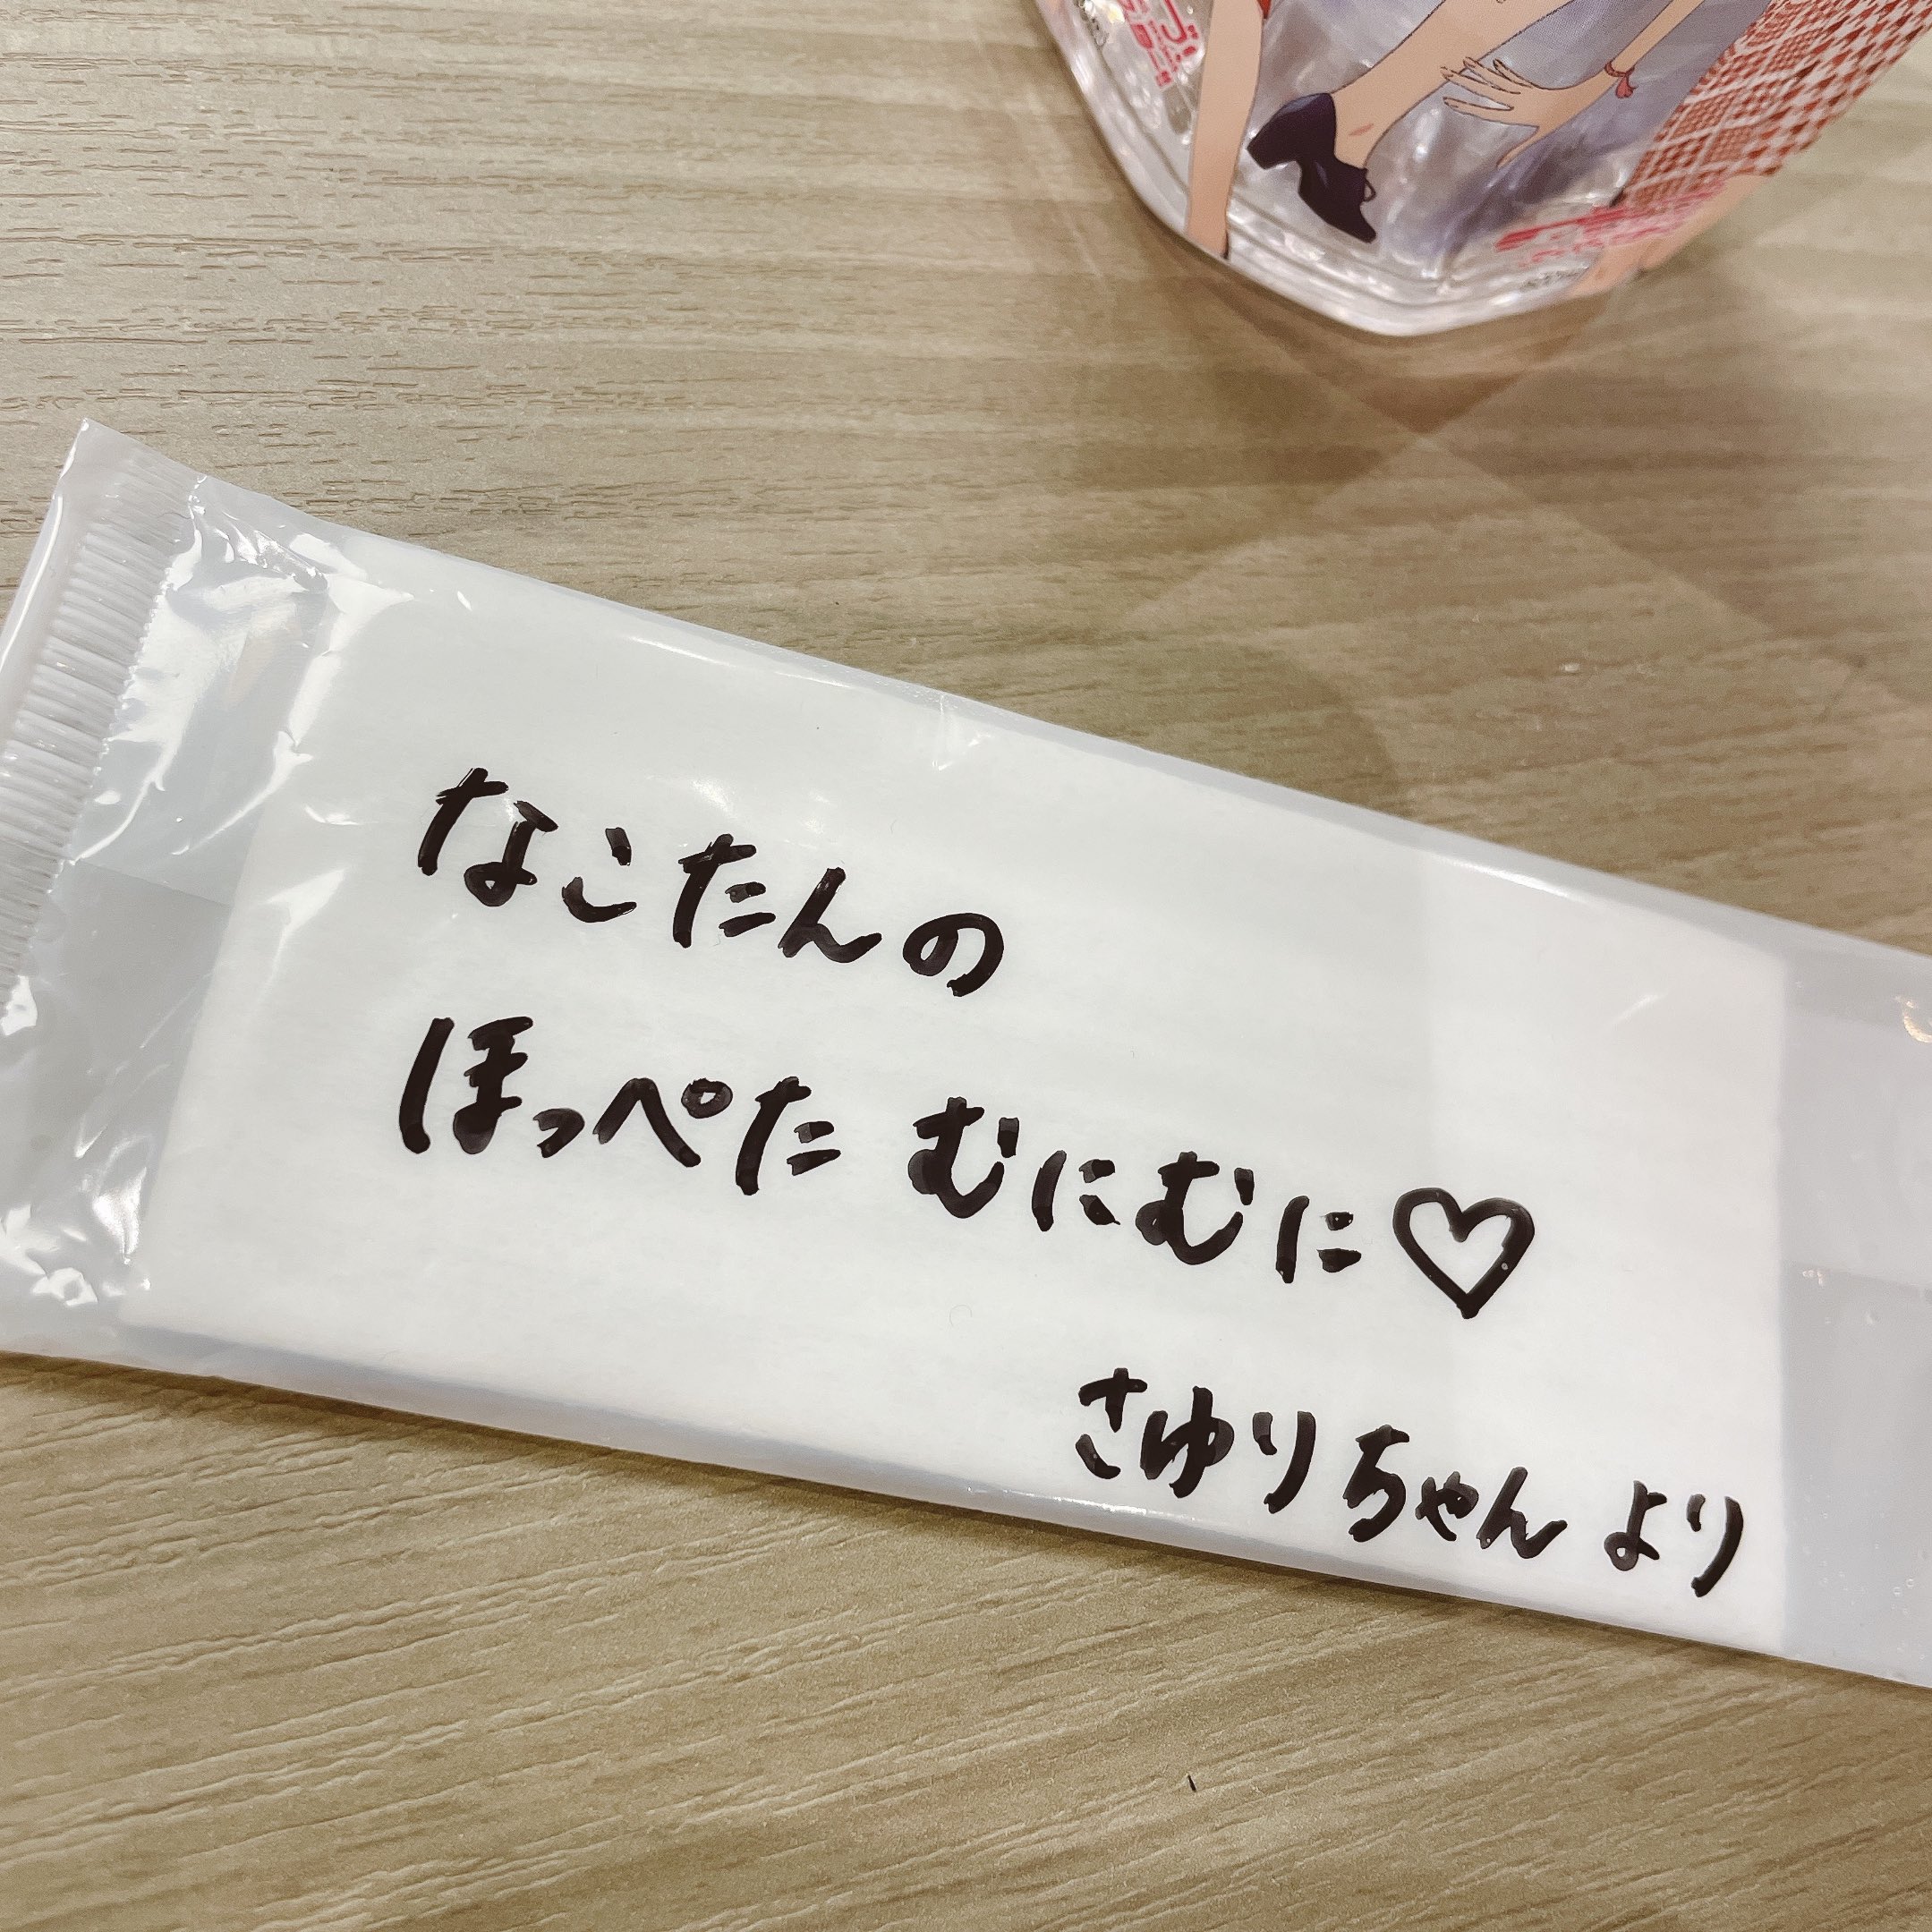 なこたんの
ほっぺた むにむに♡
さゆりちゃん より